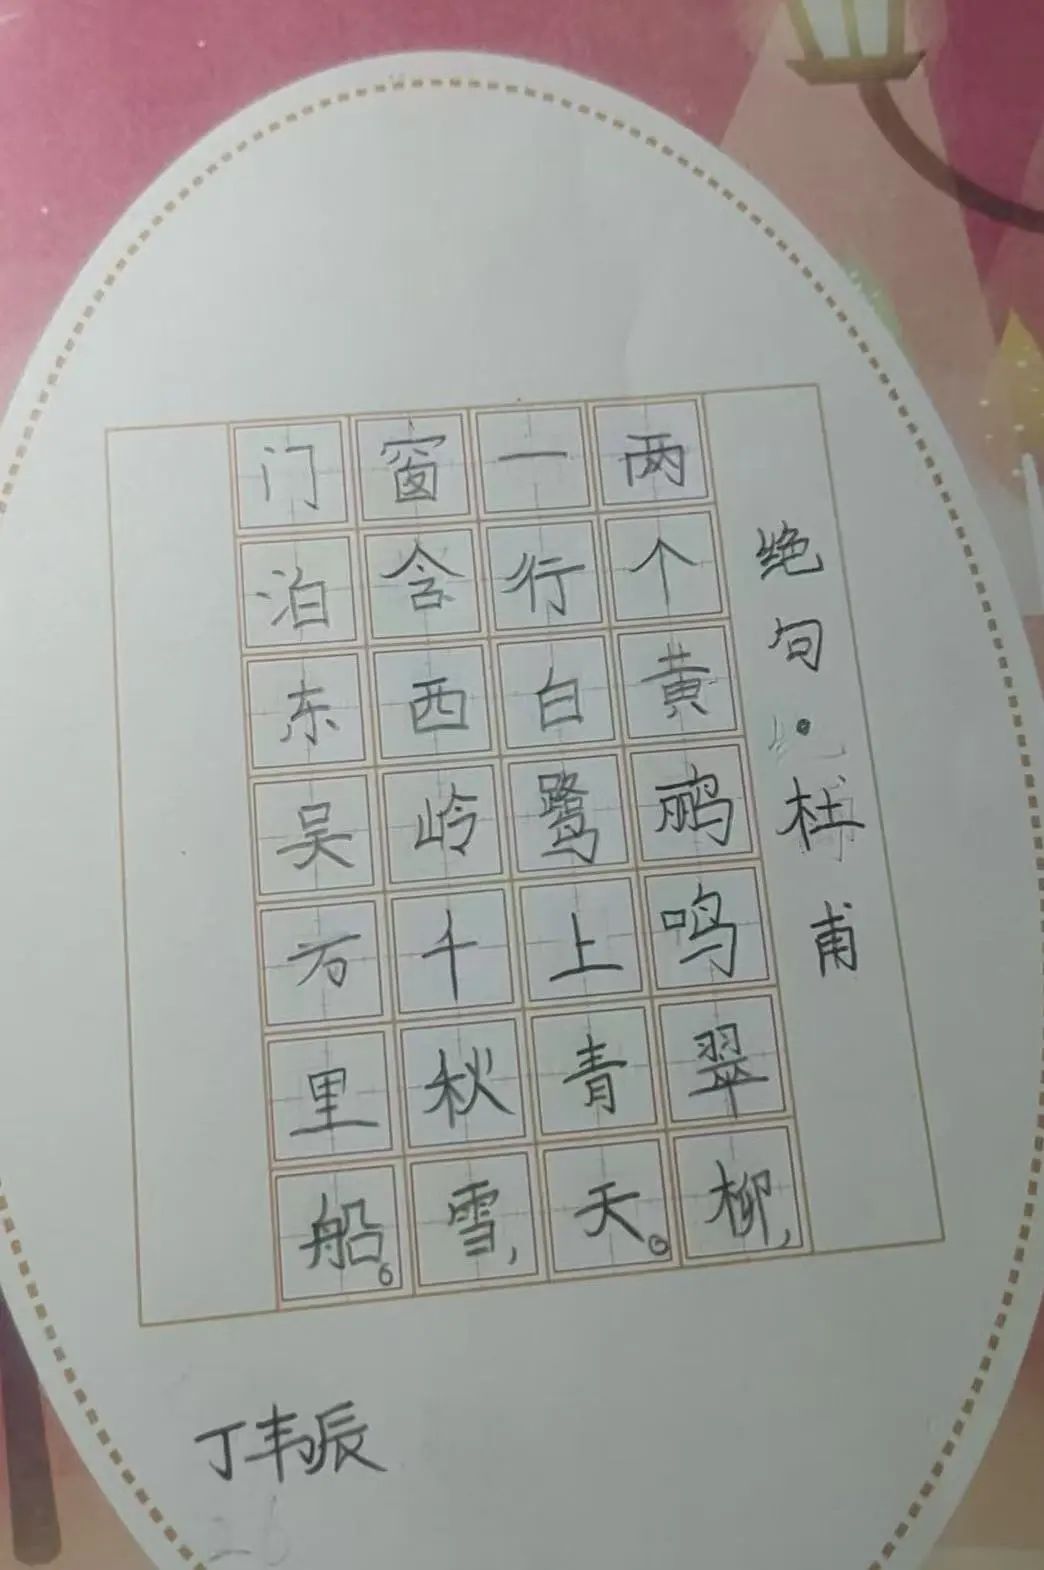 绝句·杜甫
两个黄鹂鸣翠柳，
一行白鹭上青天。
窗含西岭千秋雪，
门泊东吴万里船。
丁韦辰
26